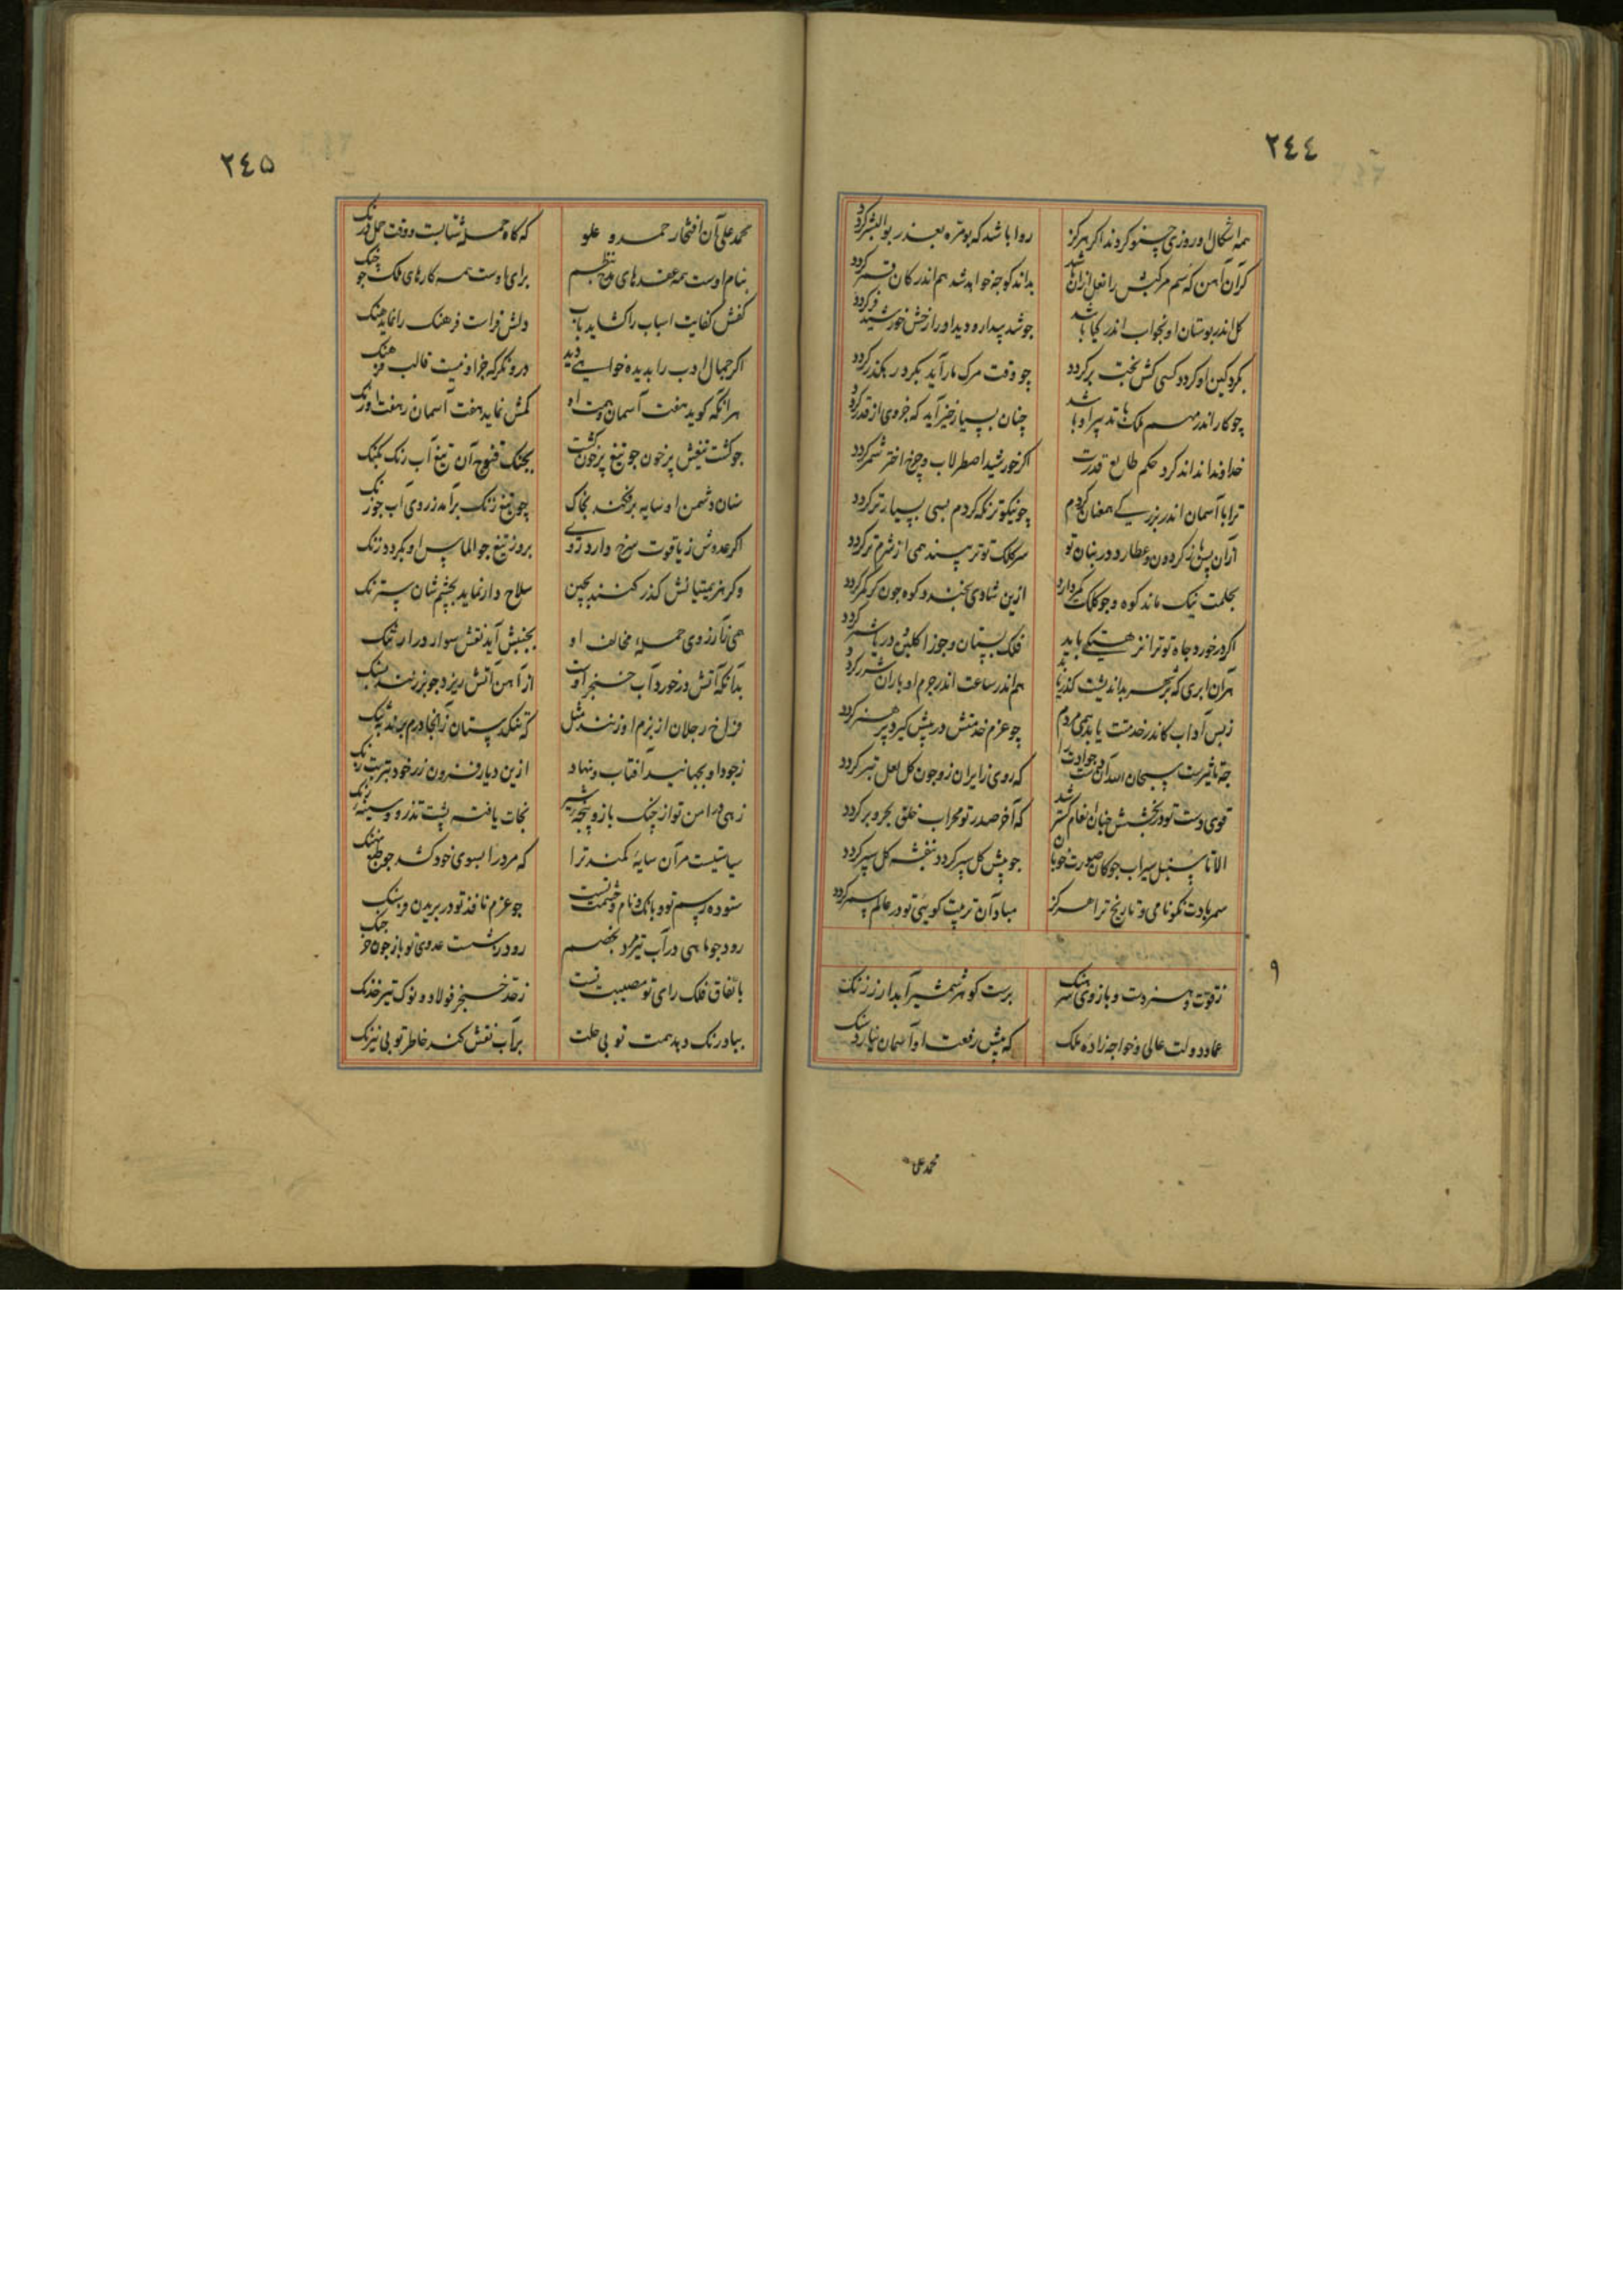 ٢٤٤
همه اشکال او روزی چنو کردند اکر هرکز روا باشد که بومره بعذر بوالبشر کردد
کر آن آهن که سم مرکبش را نعل ازان باشد بداند کو چه خواهد شد هم اندر کان قمر کردد
کل اندر بوستان او بخواب اندر کیا باشد چو شد بیدار و دید او را زخش خورشید فر کردد
بکرد کین او کردد کسی کش بخت برکردد چو وقت مرک مار آید بکرد رهکذر کردد
چو کار اندر مهم ملک با تدبیر او باشد چنان بسیار خیر آید که جزوی از قدر کردد
خداوندا نداند کرد حکم طالع قدرت اکر خورشید اصطرلاب و چرخ اختر شمر کردد
ترا با آسمان اندر بزرگی همعنان کردم چو نیکوتر نکه کردم بسی بسیارتر کردد
از آن پس کز کردون عطارد در بنان تو سر کلک تو تر بیند همی از شرم تر کردد
بحلمت نیک ماند کوه و چو کلکت کمر دارد ازین شادی بخندد کوه چون کر کمر کردد
اکر در خورد جاه تو ترا نزهتکهی باید فلک بستان و جوزا کلبن و دریا شمر کردد
هر آن ابری که بر بحر بداندیشت کذر یابد هم اندر ساعت اندر جرم او باران شرر کردد
ز بس آداب کاندر خدمتت یابد همی مردم چو عزم خدمتش در پیش کیرد پر هنر کردد
چه تاثیرست سبحان الله آن جودت را که روی زایران زو چون کل لعل تبر کردد
قوی دست تو در بخشش چنان انعام کستر شد که آخر صدر تو محراب خلق بحر و بر کردد
الا تا سنبل سیراب چوکان صورت خوبان چو پیش کل سپر کردد بنفشه کل سپر کردد
سمر بادت نکونامی و تاریخ ترا هرکز مباد آن تربیت کوئی تو در عالم سمر کردد
٩
ز قوت و هنر دست و بازوی سرهنک برست کوهر شمشیر آبدار ز زنک
عماد دولت عالی و خواجه زاده ملک که پیش رفعت او آسمان نیارد سنک
محمد علی
٢٤٥
محمد علی آن افتخار حمد و علو که کاه حمله شتابست و وقت حمل درنک
بنام اوست همه عقدهای مدح نظم برای اوست همه کارهای ملک چو چنک
کفش کفایت اسباب را کشاید باب دلش فراست فرهنک را نماید هنک
اکر جمال ادب را بدیده خواهی دید درو نکر که جز او نیست قالب فرهنک
هر آنکه کوید هفت آسمان و همت او کمش نماید هفت آسمان ز هفت اورنک
چو کشت تیغش پر خون چو تیغ پر خون کشت بجنک فتوح آن تیغ آب رنک بجنک
سنان دشمن او سایه برفکند بخاک چو تیغ زنک برآمد ز روی آب چو زنک
اکر عدوش ز یاقوت سرخ دارد روی بروز تیغ چو الماس او بکردد رنک
و کر هزیمتیانش کذر کنند بچین سلاح دار نماید بچشم شان سترنک
همی ز آرزوی حمله مخالف او بجنبش آید نقش سوار در ارتنک
بدانکه آتش در خورد آب خنجر اوست از آهن آتش ریزد چو بر زنند بسنک
فراخ رحلان از بزم او زنند مثل که تنکدستان ز آنجا درم برند بتنک
ز جود او بجهانید آفتاب و نهاد ازین دیار فزون زر خود بترست رنک
زهی در امن تو از چنک باز و پنجه شیر نجات یافته پشت تذرو و سینه رنک
سیاستیست مر آن سایه کمند ترا که مرد را بسوی خود کشد چو طبع نهنک
ستوده رسم تو و بانک و نام و حشمت تست چو عزم نافذ تو در بریدن فرسنک
رود چو ماهی در آب تیر مرد بخصم رود درشت عدوی تو باز چون خرچنک
باتفاق فلک رای تو مصیبت تست ز قد خنجر فولاد و نوک تیر خدنک
بباد رنک دهد همت تو بی علت بر آب نقش کند خاطر تو بی نیرنک